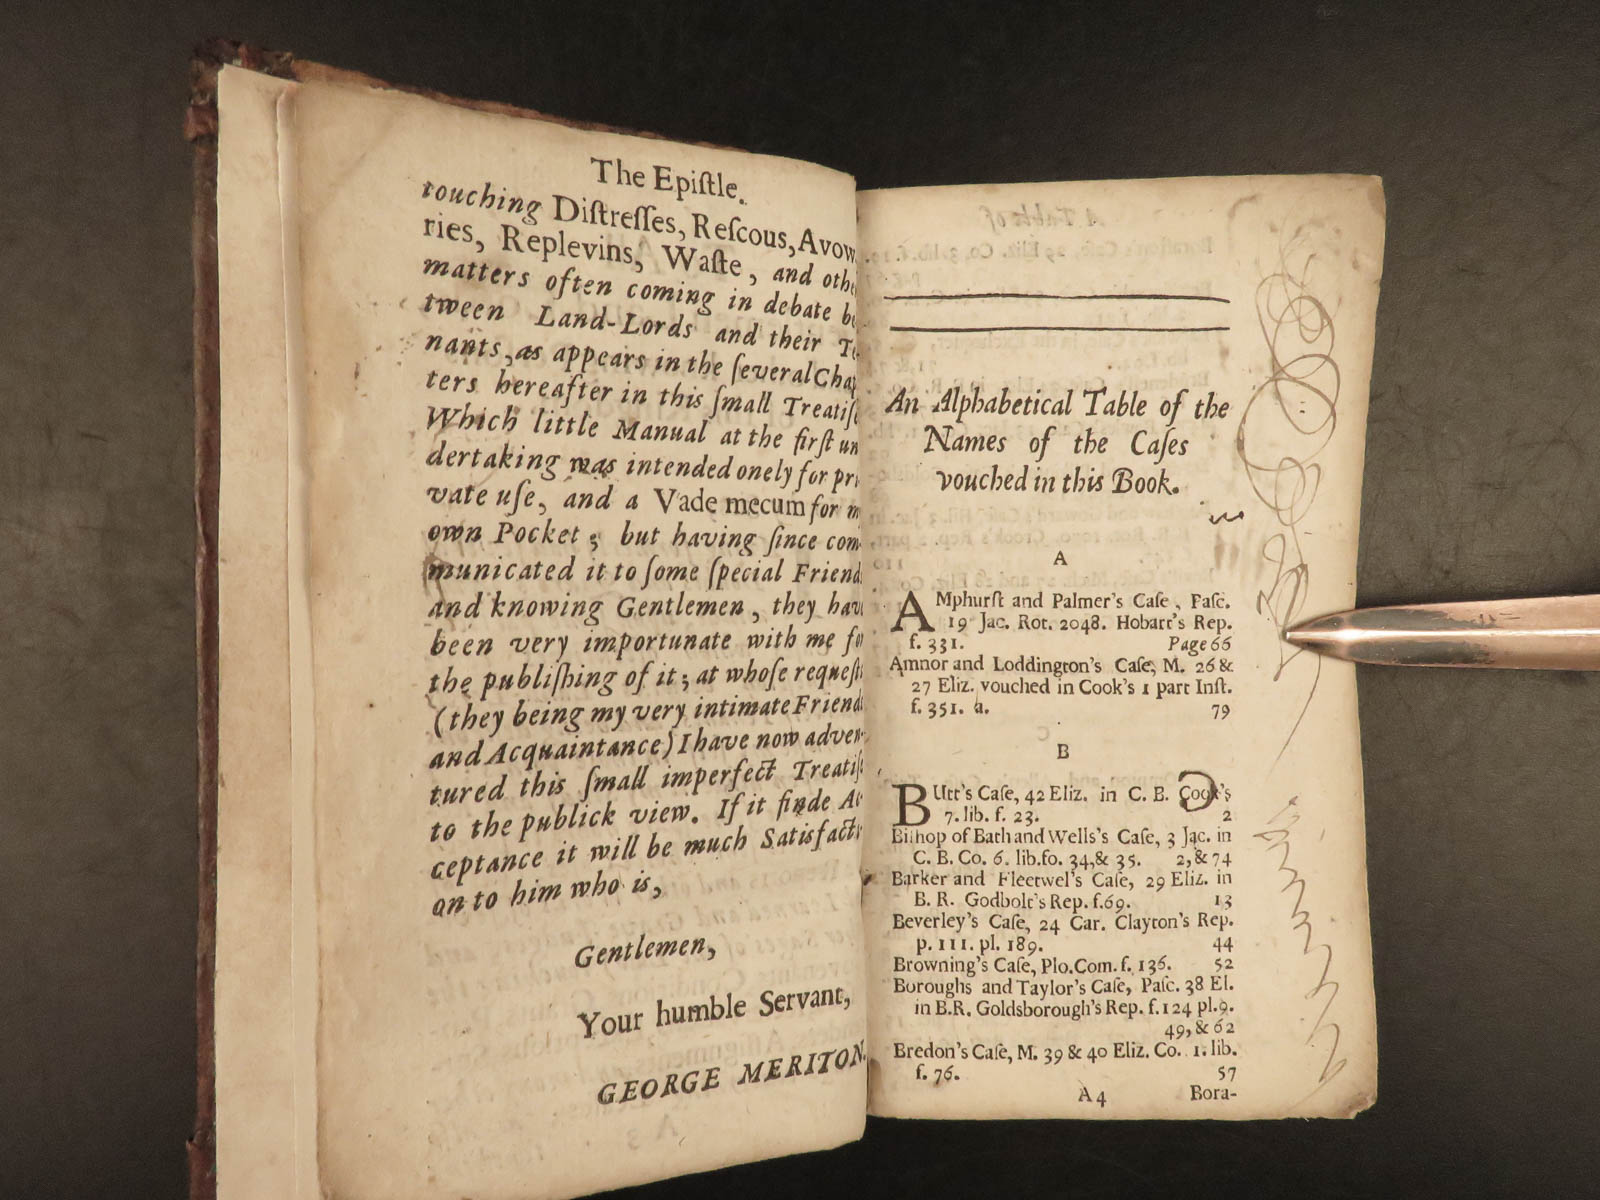 The Epiſtle.
touching Diſtreſſes, Reſcous, Avow
ries, Replevins, Waſte, and othe
matters often coming in debate be
tween Land-Lords and their Te
nants, as appears in the ſeveral Chap
ters hereafter in this ſmall Treatiſe
Which little Manual at the firſt un
dertaking was intended onely for pri
vate uſe, and a Vade mecum for m
own Pocket; but having ſince com
municated it to ſome ſpecial Friend
and knowing Gentlemen, they have
been very importunate with me fo
the publiſhing of it; at whoſe requeſt
(they being my very intimate Friend
and Acquaintance) I have now adven-
tured this ſmall imperfect Treatiſ
to the publick view. If it finde Ac
ceptance it will be much Satisfacti
on to him who is,
Gentlemen,
Your humble Servant,
GEORGE MERITON.
An Alphabetical Table of the
Names of the Caſes
vouched in this Book.
A
AMphurſt and Palmer's Caſe, Paſc.
19 Jac. Rot. 2048. Hobart's Rep.
f. 331. Page 66
Amnor and Loddington's Caſe, M. 26 &
27 Eliz. vouched in Cook's 1 part Inſt.
f. 351. a. 79
B
BUtt's Caſe, 42 Eliz. in C. B. Cook's
7. lib. f. 23. 2
Biſhop of Bath and Wells's Caſe, 3 Jac. in
C. B. Co. 6. lib. fo. 34, & 35. 2, & 74
Barker and Fleetwel's Caſe, 29 Eliz. in
B. R. Godbolt's Rep. f. 69. 13
Beverley's Caſe, 24 Car. Clayton's Rep.
p. 111. pl. 189. 44
Browning's Caſe, Plo. Com. f. 136. 52
Boroughs and Taylor's Caſe, Paſc. 38 El.
in B.R. Goldsborough's Rep. f. 124 pl. 9.
49, & 62
Bredon's Caſe, M. 39 & 40 Eliz. Co. 1. lib.
f. 76. 57
A 4 Bora-